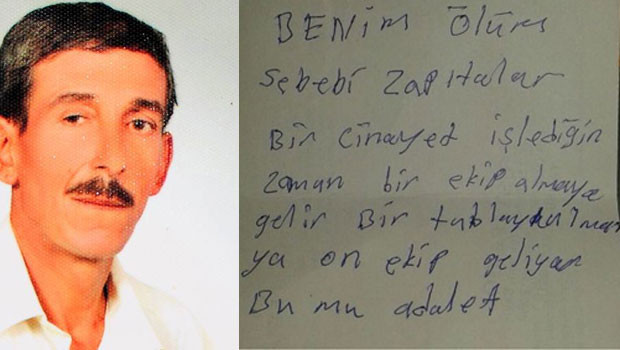 BENİM ÖLÜM
Sebebi Zapıtalar
Bir Cinayet işlediğin
zaman bir ekip almaya
gelir Bir tablaykulman
ya on ekip geliyar
Bu mu adalet